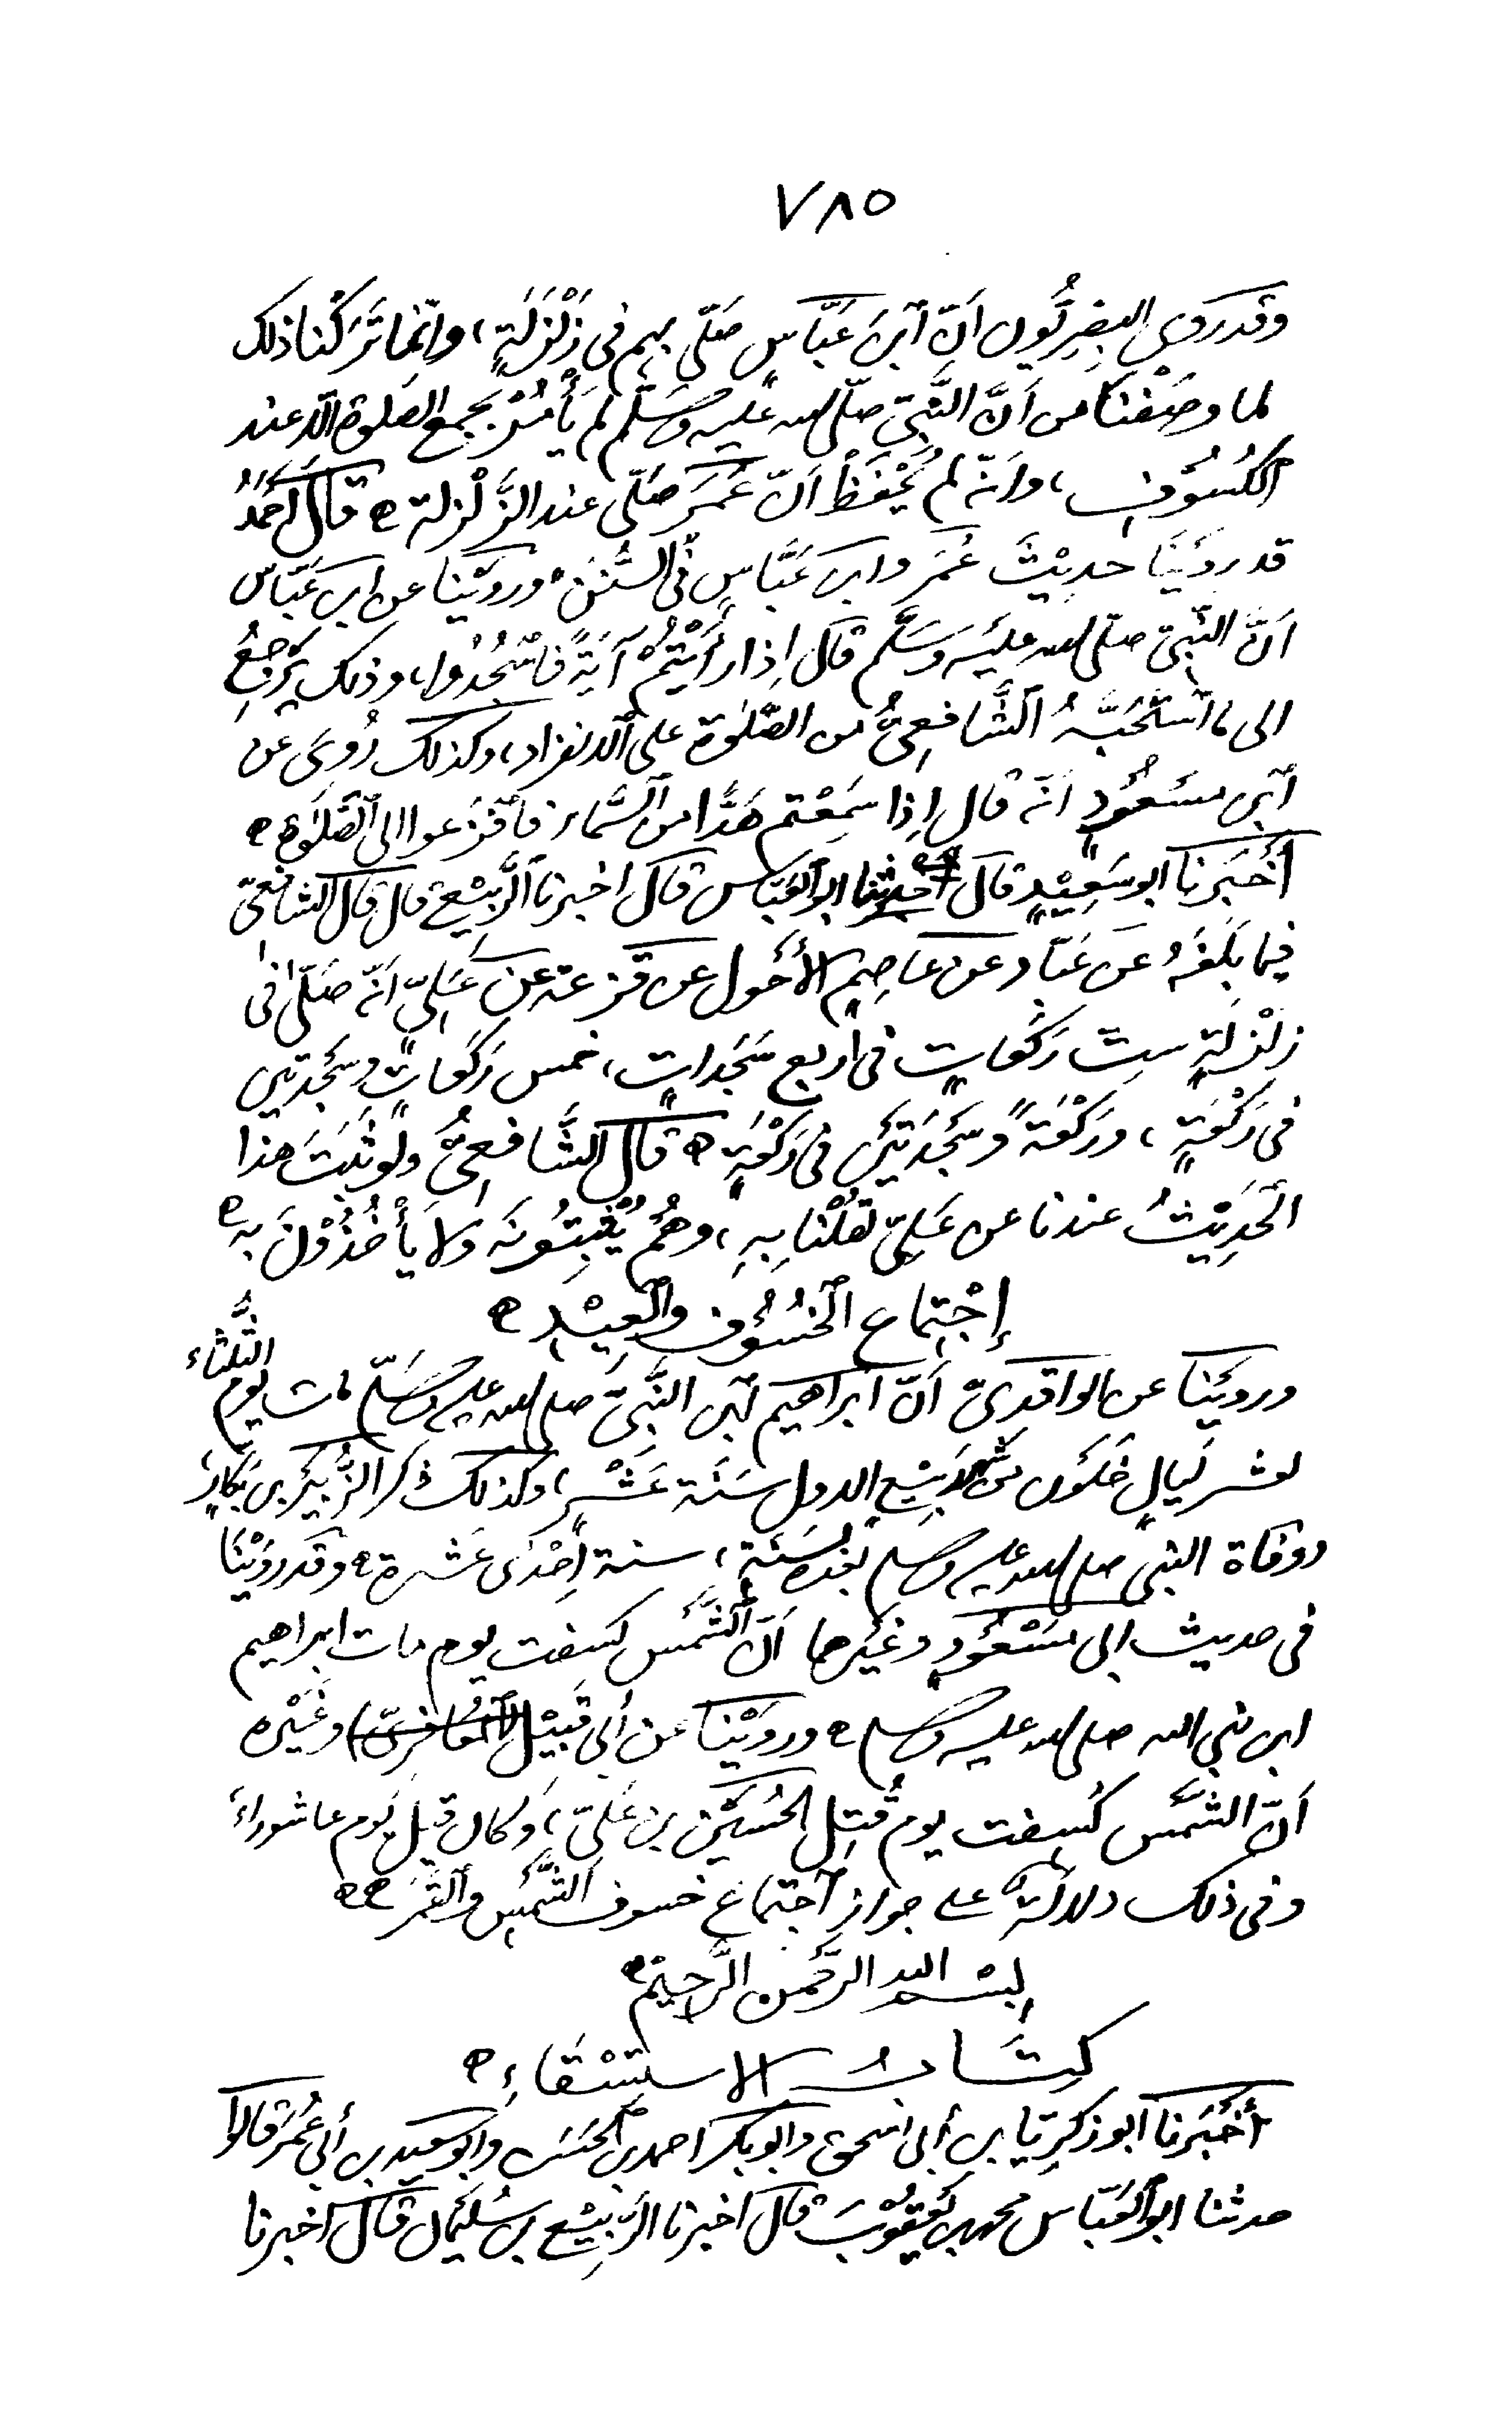 ٧٨٥
وقد روى البِصرِيُّون اَنّ ٱبنَ عَبّاسٍ صَلّى بهم فى زَلْزَلَةٍ، وانّما تَرَكْنا ذلك
لما وصَفْنا من اَنَّ النَّبِىّ صلّى الله عليه وسَلّم لم يَأْمُرْ بجمع الصلوة الاّ عند
الكُسُوْفِ، وانّه لم يُحْفَظْ اَنّ عُمَرَ صَلّى عند الزَّلْزلة ه قال اَحمَدُ
قد روَيْنَا حديْثَ عُمَرَ وابن عَبَّاسٍ فى السُّنَنِ وروَيْنا عن ابن عَبّاس
اَنَّ النَّبِىّ صلّى الله علَيْه وَسَلَّم قال اِذا رأَيْتُمْ آيَةً فٱسْجُدُوا، وذلك يَرْجِعُ
الى ما ٱسْتَحَبَّهُ الشَّافِعِىُّ من الصَّلٰوة على الانفراد، وكذلك رُوِىَ عن
ٱبن مسَعُوْدٍ انّه قال اِذا سَمِعْتم هَدًّا من السَّماء فٱفْزَعوا الى الصَّلٰوة ه
أَخبَرنا ابو سَعِيْدٍ قال حدثنا ابو العَبّاس قال اخبرنا الرَّبِيْع قال قال الشافعىّ
فيما بلَغَهُ عَن عَبّاد عن عاصِمٍ الأَحْول عن قزعة عن عَلِىّ انّه صَلّى فى
زلْزلَةٍ سِتّ رَكعاتٍ فى أربع سَجَداتٍ، خمس رَكعاتٍ وسَجْدتين
فى رَكْعَةٍ، ورَكْعَةً وسَجْدَتَيْن فى رَكْعَةٍ ه قال الشَّافِعِىُّ ولو ثَبَتَ هذا
الحَدِيْثُ عندنا عن عَلِىّ لقُلْنا بِهِ، وهُمْ يُثْبِتُوْنَه ولا يَأْخُذُوْنَ به ه
إِجْتِماع الخُسُوْف والعِيْدِ ه
وروَيْنا عن الواقدىّ اَنّ ابراهيم ٱبن النَّبِىّ صلى الله عليه وسَلّم مات يوم الثُّلثاء
لعشر لَيالٍ خَلَوْن من شهر رَبِيْعٍ الاول سَنَة عَشْرٍ، وكذلك ذكر الزُّبَيْر بن بَكّارٍ
ووفاة النبى صلى الله عليه وسلم بعْدَهُ لسَنَةٍ، سنة اِحْدَى عَشْرة ه وقد روَيْنَا
فى حديث ابى مَسْعُوْدٍ وغَيْرهما اَنّ الشَّمْس كسفت يوم مات ابراهيم
ابن نبى الله صلى الله عليه وسلم ه وروَيْنا عن أبى قَبِيْل المعافرىّ وغَيْره
اَنّ الشَّمْس كُسِفت يوم قُتِل الحُسَيْن بن عَلِىّ، وكان قتل يَوْم عاشوراءَ
وفى ذلك دلالة على جواز ٱجتماع خسوف الشَّمْس والقَمَر ه ه
بِسْم الله الرَّحْمن الرَّحِيْم ه
كِتَابُ الاستِسْقَاءِ ه
أَخْبَرنا ابو زكَرِيّا بن أبى اسحٰق وابو بكر احمد بن الحَسَن وابو سعِيد بن أبى عُمَر قالوا
حدثنا ابو العَبّاس محمد بن يَعْقُوْبَ قال اخبرنا الرَّبِيْع بن سُلَيْمان قال اخبرنا